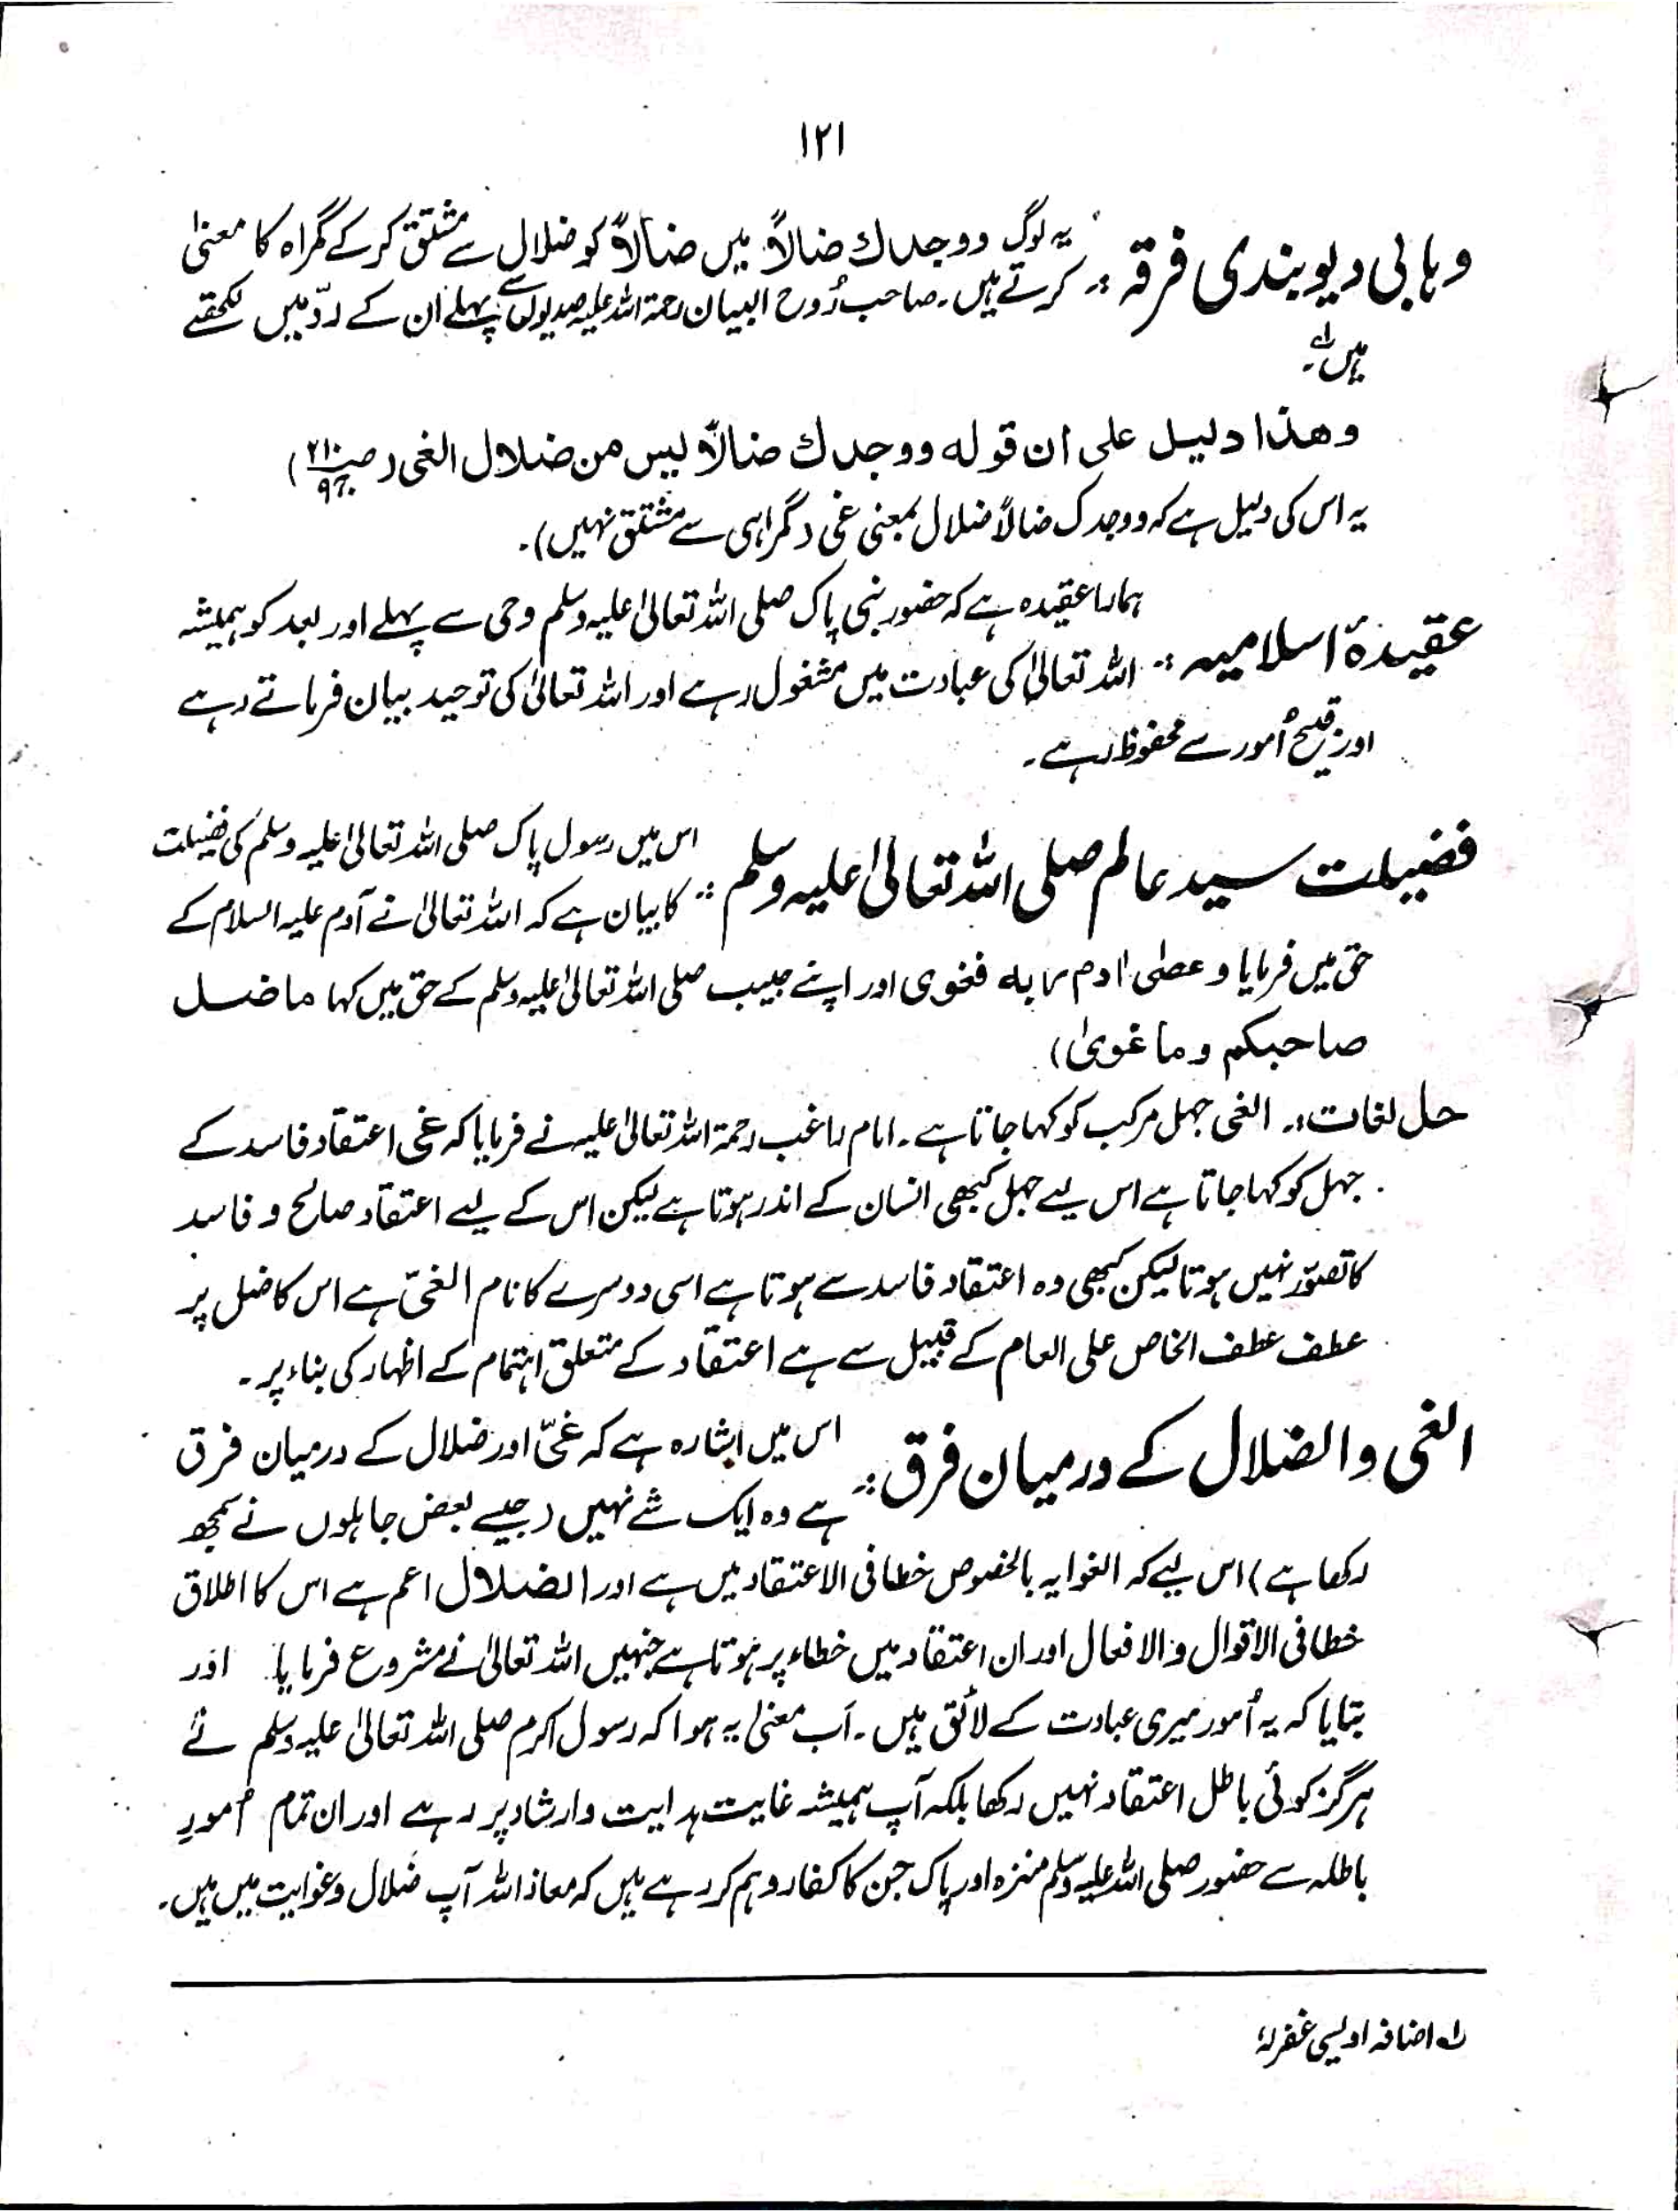 ۱۲۱
وہابی دیوبندی فرقہ :۔ یہ لوگ ووجدك ضالاً میں ضالاً کو ضلال سے مشتق کرکے گمراہ کا معنیٰ
کرتے ہیں۔ صاحب رُوح البیان رحمۃ اللہ علیہ صدیوں سے پہلے ان کے ردّ میں لکھتے
ہیں لہ۔
وهذا دليل على ان قوله ووجدك ضالاً ليس من ضلال الغى (ص ۲۱۰ ج ۹)
یہ اس کی دلیل ہے کہ ووجدک ضالاً ضلال بمعنی غی (گمراہی سے مشتق نہیں)۔
عقیدۂ اسلامیہ :۔ ہمارا عقیدہ ہے کہ حضور نبی پاک صلی اللہ تعالیٰ علیہ وسلم وحی سے پہلے اور بعد کو ہمیشہ
اللہ تعالیٰ کی عبادت میں مشغول رہے اور اللہ تعالیٰ کی توحید بیان فرماتے رہے
اور قبیح اُمور سے محفوظ رہے۔
فضیلت سید عالم صلی اللہ تعالیٰ علیہ وسلم :۔ اس میں رسول پاک صلی اللہ تعالیٰ علیہ وسلم کی فضیلت
کا بیان ہے کہ اللہ تعالیٰ نے آدم علیہ السلام کے
حق میں فرمایا وعصٰی اٰدم ربه فغوی اور اپنے حبیب صلی اللہ تعالیٰ علیہ وسلم کے حق میں کہا ماضل
صاحبکم وما غویٰ)
حل لغات :۔ الغی جہل مرکب کو کہا جاتا ہے۔ امام راغب رحمۃ اللہ تعالیٰ علیہ نے فرمایا کہ غی اعتقاد فاسد کے
جہل کو کہا جاتا ہے اس لیے جہل کبھی انسان کے اندر ہوتا ہے لیکن اس کے لیے اعتقاد صالح و فاسد
کا تصوّر نہیں ہوتا لیکن کبھی وہ اعتقاد فاسد سے ہوتا ہے اسی دوسرے کا نام الغیّ ہے اس کا ضل پر
عطف عطف الخاص علی العام کے قبیل سے ہے اعتقاد کے متعلق اہتمام کے اظہار کی بناء پر۔
الغی والضلال کے درمیان فرق :۔ اس میں اشارہ ہے کہ غیّ اور ضلال کے درمیان فرق
ہے وہ ایک شے نہیں (جیسے بعض جاہلوں نے سمجھ
رکھا ہے) اس لیے کہ الغوایہ بالخصوص خطا فی الاعتقاد میں ہے اور الضلال اعم ہے اس کا اطلاق
خطا فی الاقوال والافعال اور ان اعتقاد میں خطاء پر ہوتا ہے جنہیں اللہ تعالیٰ نے مشروع فرمایا اور
بتایا کہ یہ اُمور میری عبادت کے لائق ہیں۔ اَب معنیٰ یہ ہوا کہ رسول اکرم صلی اللہ تعالیٰ علیہ وسلم نے
ہرگز کوئی باطل اعتقاد نہیں رکھا بلکہ آپ ہمیشہ غایت ہدایت و ارشاد پر رہے اور ان تمام اُمورِ
باطلہ سے حضور صلی اللہ علیہ وسلم منزہ اور پاک جن کا کفار وہم کر رہے ہیں کہ معاذ اللہ آپ ضلال و غوایت میں ہیں۔
لہ اضافہ اویسی غفرلہٗ